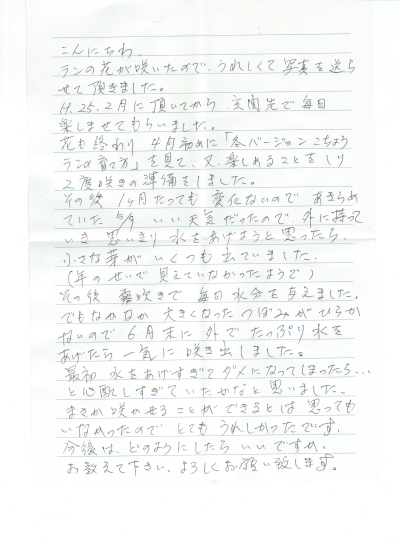 こんにちわ、
ランの花が咲いたので、うれしくて写真を送ら
せて頂きました。
H.25.2月に頂いてから 玄関先で毎日
楽しませてもらいました。
花も終わり 4月初めに「冬バージョン こちょう
ランの育て方」を見て、又、楽しめることをしり
2度咲きの準備をしました。
その後 1ヶ月たっても 変化ないので あきらめ
ていた いい天気だったので 外に持って
いき 思いきり 水をあげようと思ったら、
小さな芽が いくつも出ていました。
(年のせいで見えていなかったようで)
その後 霧吹きで 毎日水分を与えました。
でもなかなか 大きくなった つぼみがひらか
ないので 6月末に 外で たっぷり水を
あげたら 一気に 咲き出しました。
最初 水をあげすぎてダメになってしまったら…
と心配しすぎていたかなと思いました。
まさか咲かせることができるとは 思っても
いなかったので とてもうれしかったです。
今後は、どのようにしたら いいですか、
お教えて下さい、よろしくお願い致します。